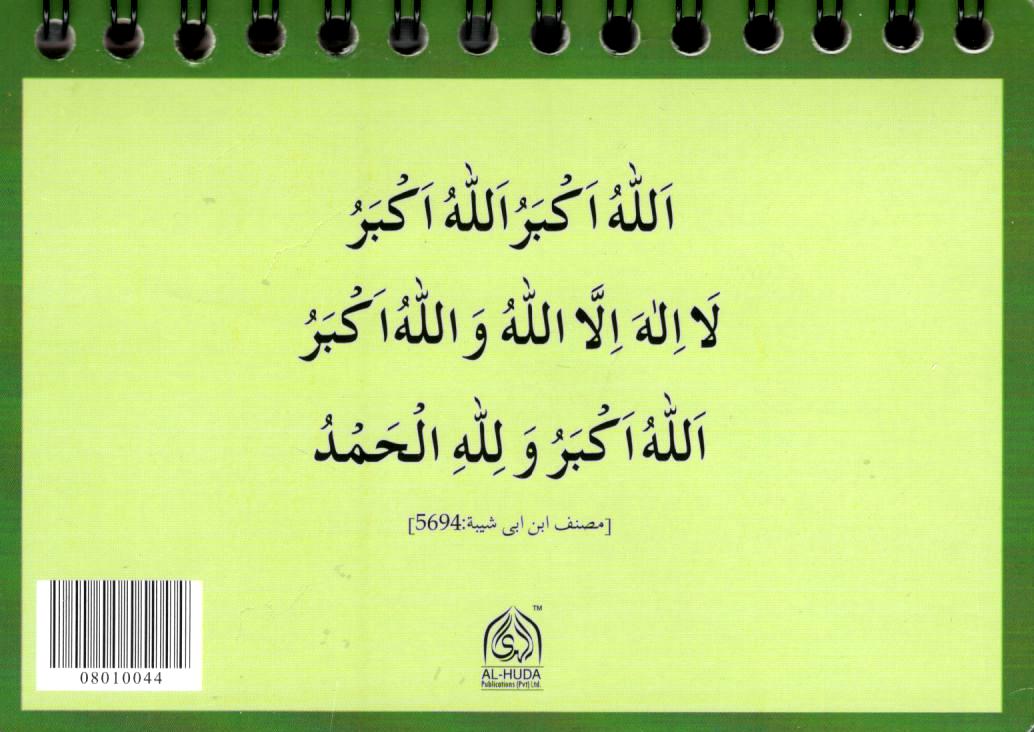 اَللّٰهُ اَكْبَرُ اَللّٰهُ اَكْبَرُ
لَا اِلٰهَ اِلَّا اللّٰهُ وَ اللّٰهُ اَكْبَرُ
اَللّٰهُ اَكْبَرُ وَ لِلّٰهِ الْحَمْدُ
[مصنف ابن ابى شيبة:5694]
08010044
الهدى
TM
AL-HUDA
Publications (Pvt) Ltd.